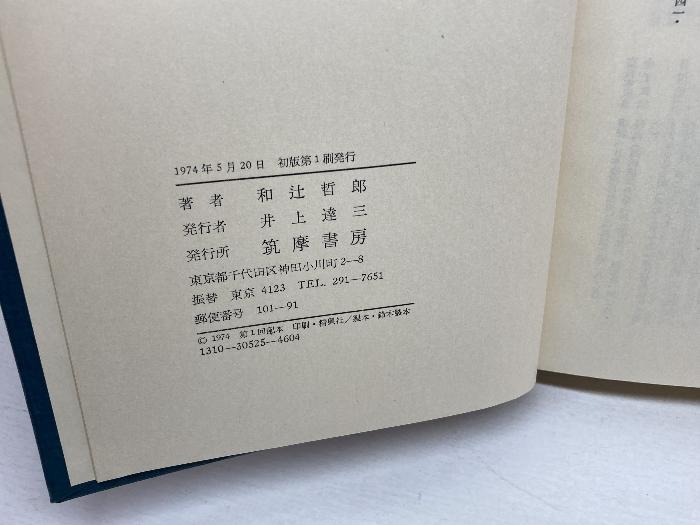 1974年5月20日 初版第1刷発行
著者 和辻哲郎
発行者 井上達三
発行所 筑摩書房
東京都千代田区神田小川町2—8
振替 東京 4123 TEL. 291—7651
郵便番号 101—91
© 1974 第1回配本 印刷・精興社／製本・鈴木製本
1310—30525—4604